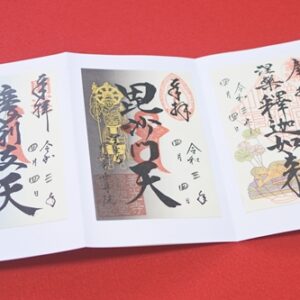 奉
令和三年
涅槃釋迦如来
四月四日
奉拝
令和三年
毘沙門天
四月四日
奉拝
令和三年
摩利支天
四月四日